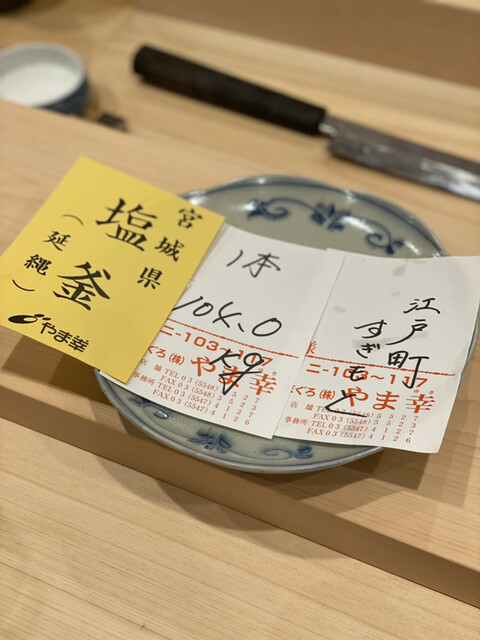 宮城県
塩釜
(延縄)
やま幸
1本
104.0
Kg
ニ-103~107
まぐろ(株)やま幸
店舗 TEL 03 (5548)
FAX 03 (5548)
事務所 TEL 03 (5547)
FAX 03 (5547)
江戸町
すぎもと
業
ニ-103~107
ぐろ(株)やま幸
店舗 TEL 03 (5548) 5527
FAX 03 (5548) 5527
事務所 TEL 03 (5547) 4128
FAX 03 (5547) 4126